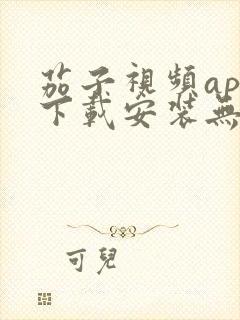 茄子視頻ap
下載安裝無
可兒